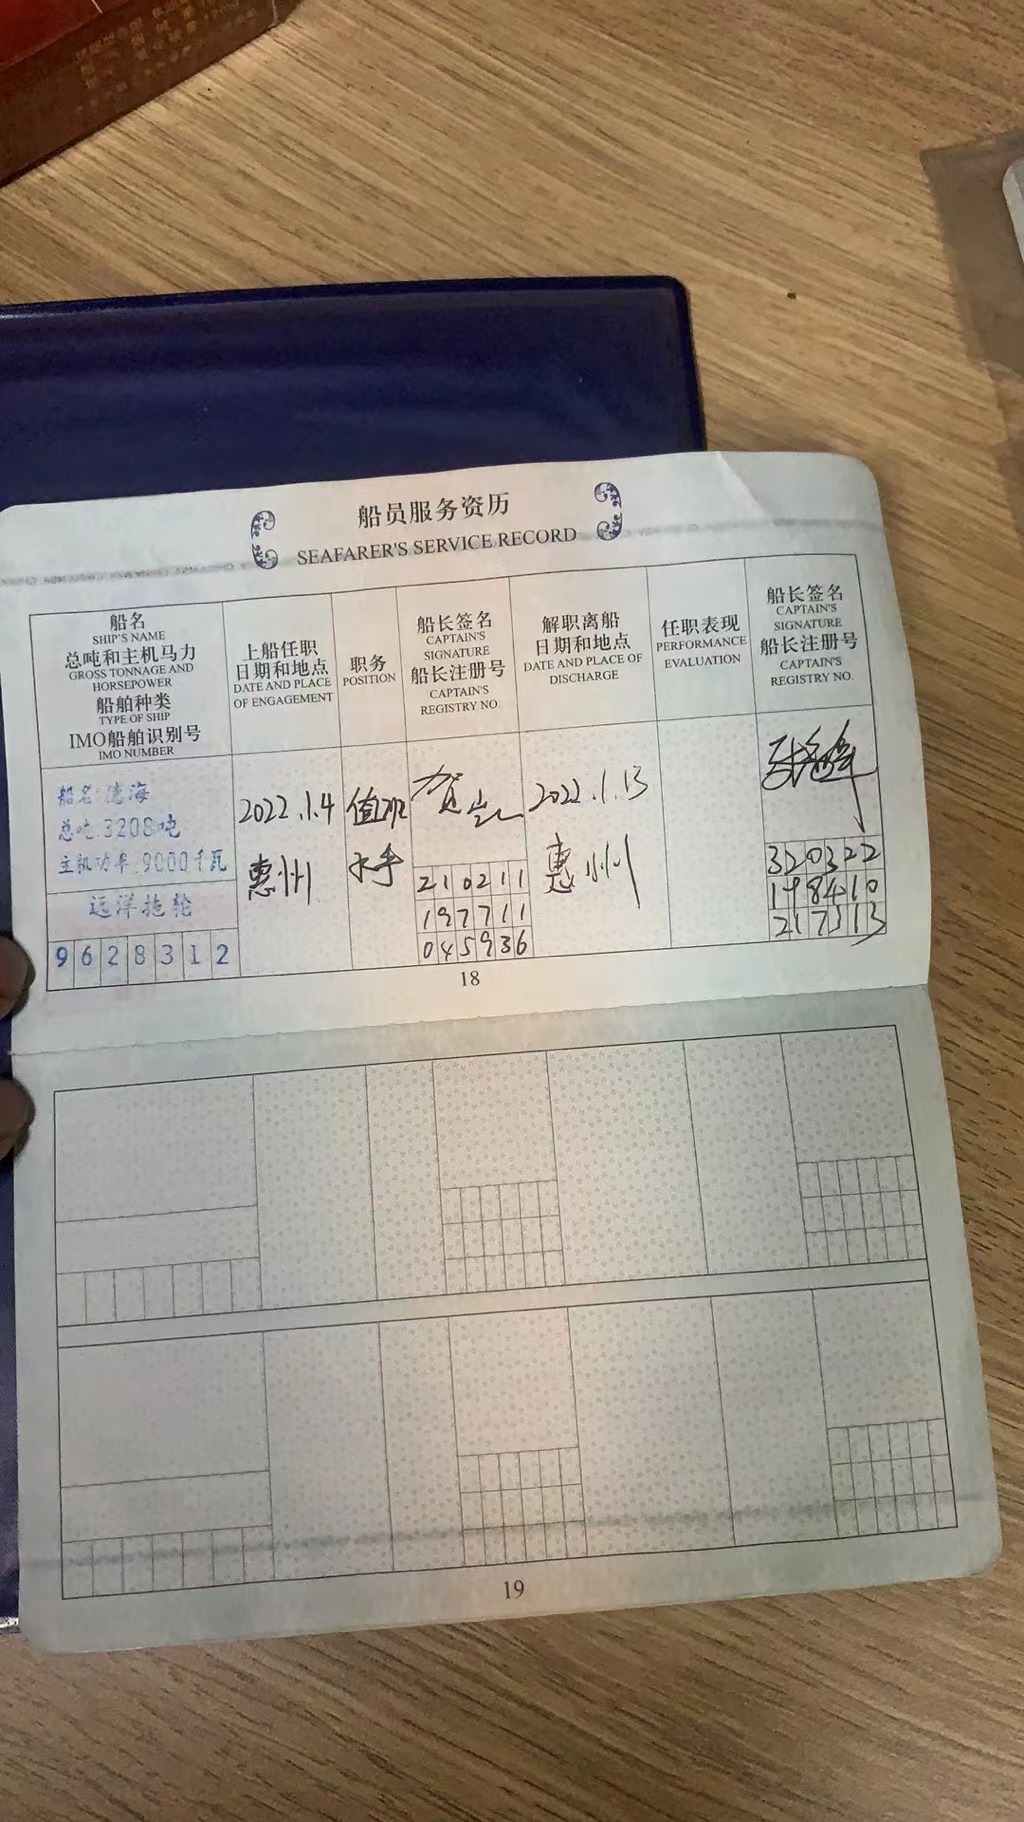 船员服务资历
SEAFARER'S SERVICE RECORD
船名
SHIP'S NAME
总吨和主机马力
GROSS TONNAGE AND
HORSEPOWER
船舶种类
TYPE OF SHIP
IMO船舶识别号
IMO NUMBER
上船任职
日期和地点
DATE AND PLACE
OF ENGAGEMENT
职务
POSITION
船长签名
CAPTAIN'S
SIGNATURE
船长注册号
CAPTAIN'S
REGISTRY NO.
解职离船
日期和地点
DATE AND PLACE OF
DISCHARGE
任职表现
PERFORMANCE
EVALUATION
船长签名
CAPTAIN'S
SIGNATURE
船长注册号
CAPTAIN'S
REGISTRY NO.
船名:德海
总吨:3208吨
主机功率:9000千瓦
远洋拖轮
9628312
2022.1.4
惠州
值班
水手
贺
210211
197711
045936
2022.1.13
惠州
张
320322
198410
217313
18
19